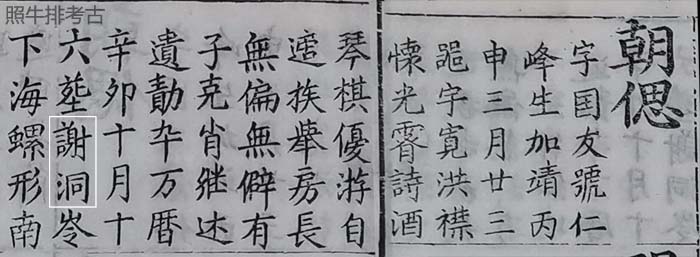 照牛排考古
朝偲
字国友號仁
峰生加靖丙
申三月廿三
噐宇寬洪襟
懐光霽詩酒
琴棋優游自
遣族舉房長
無偏無僻有
子克肖継述
遺勣卒万暦
辛卯十月十
六塟謝洞岺
下海螺形南